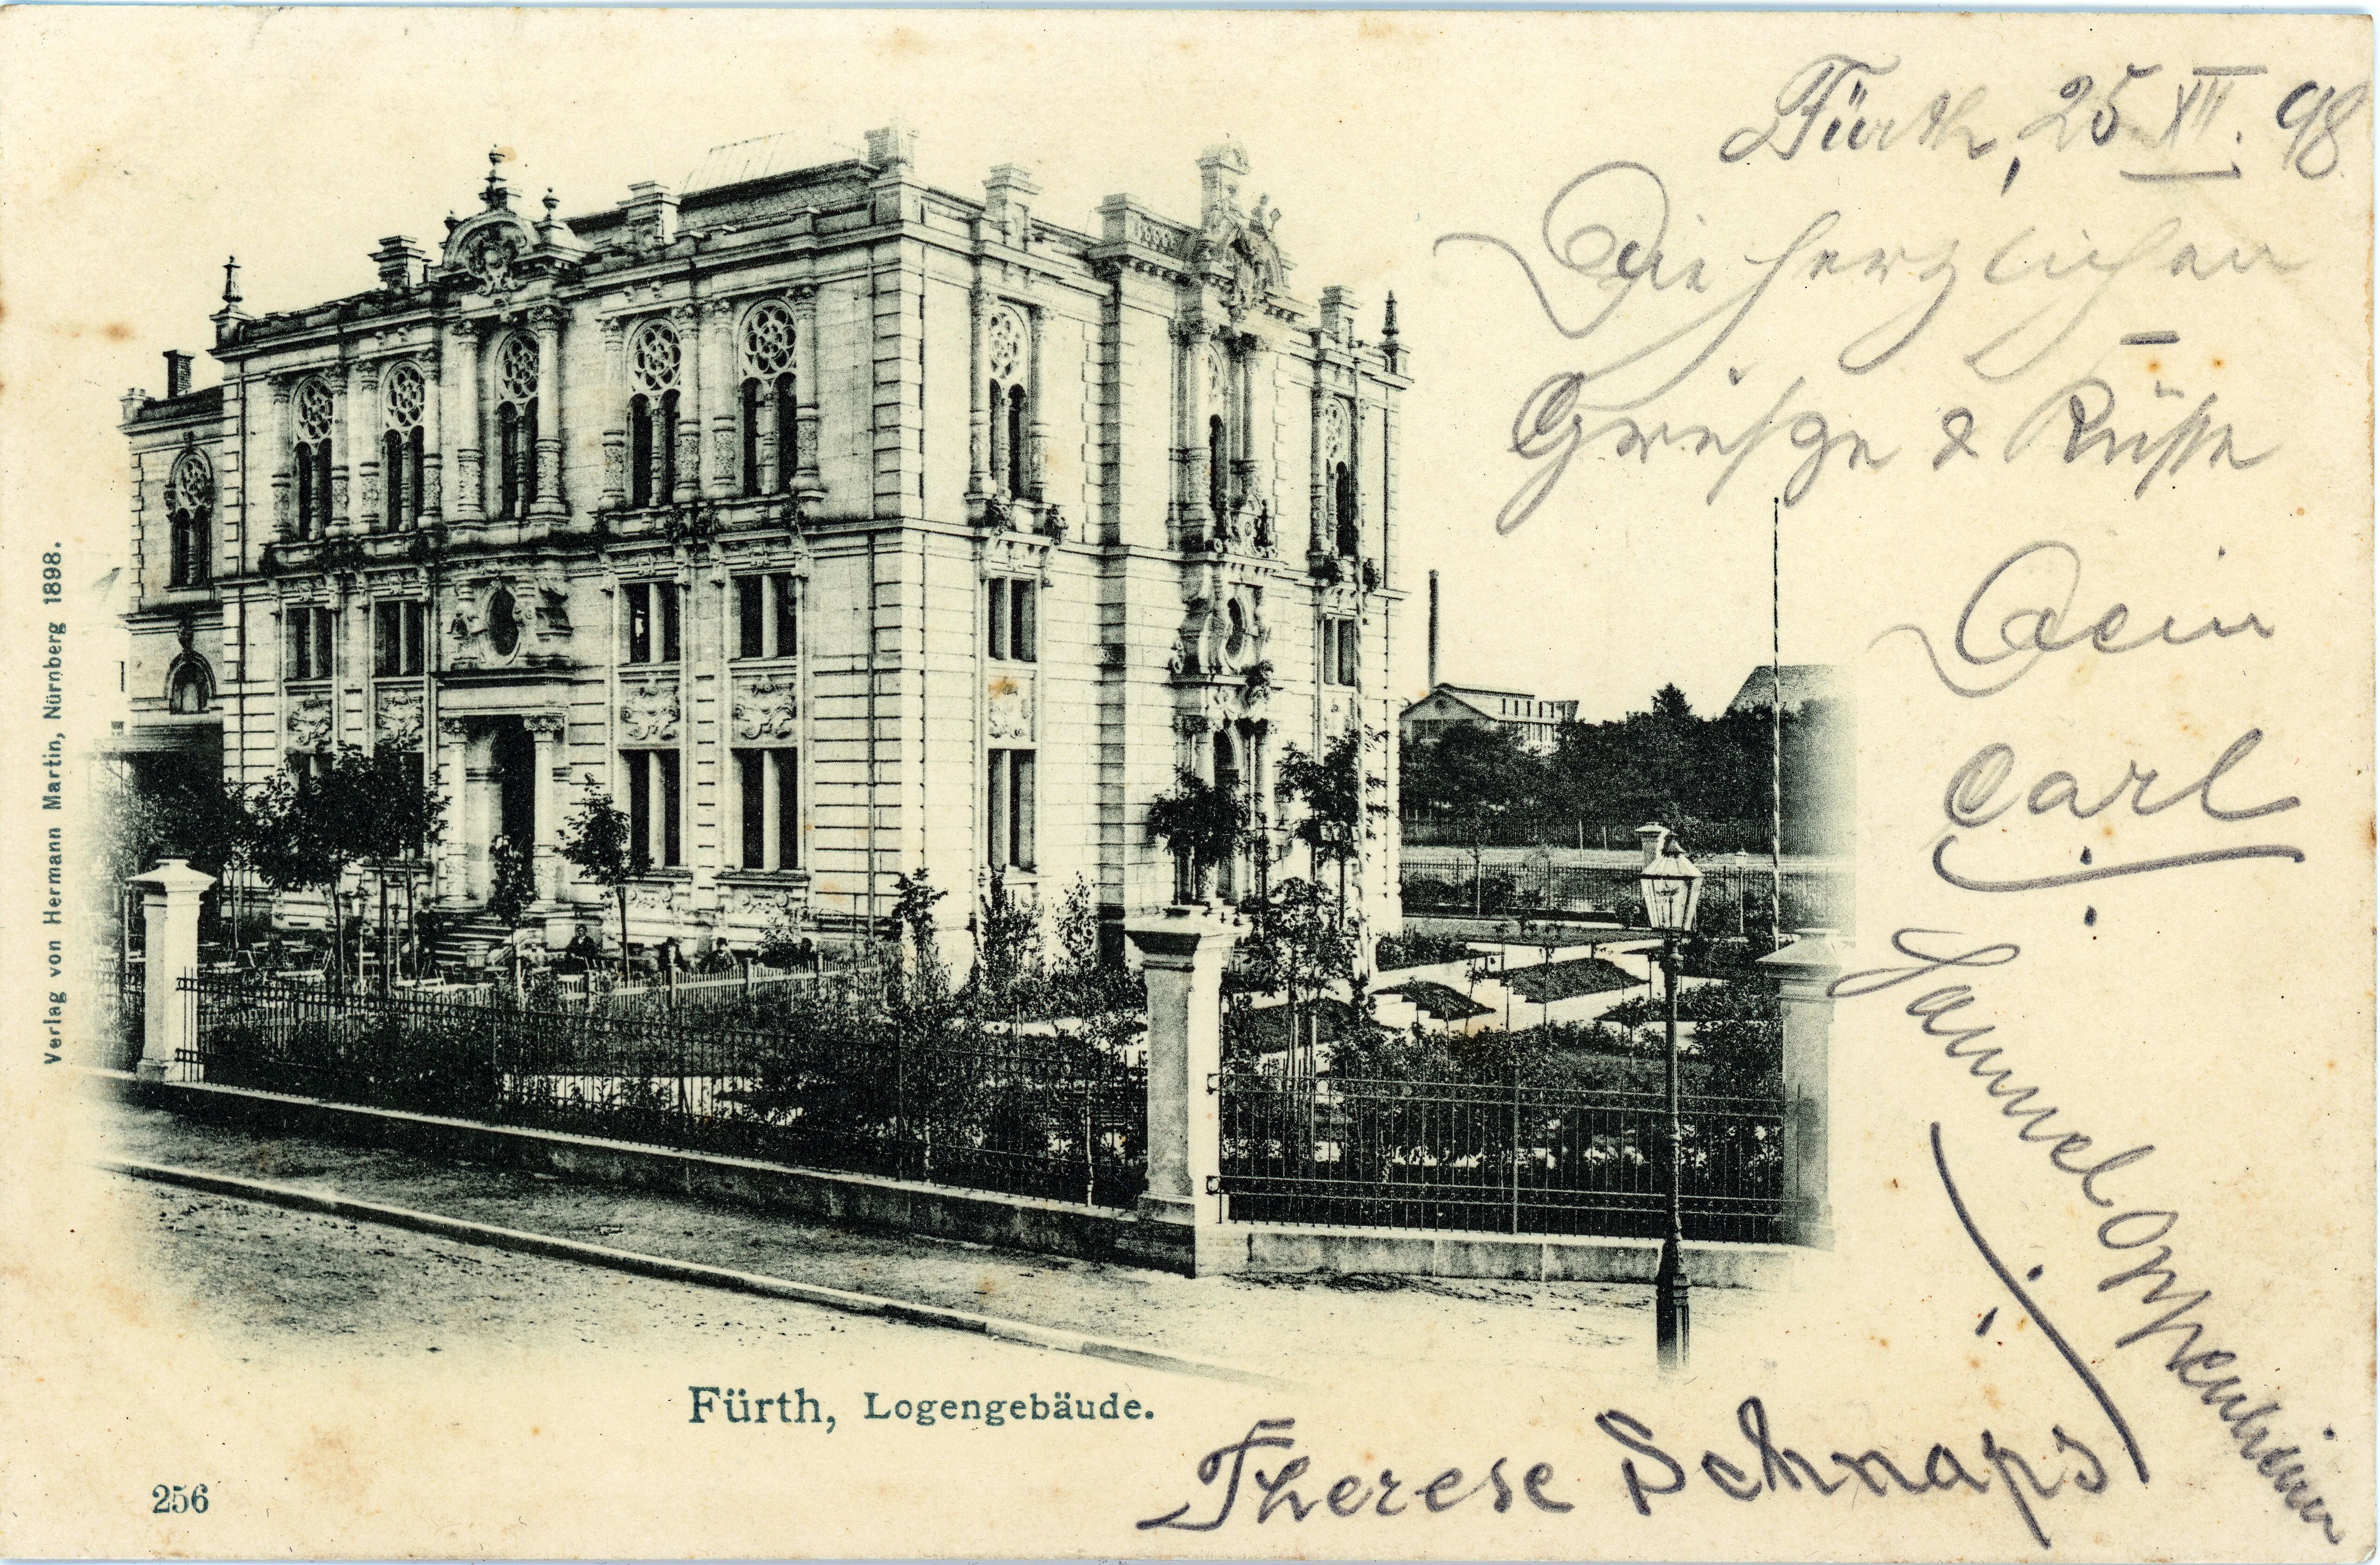 Fürth, 25 XII. 98.
Die herzlichen
Grüße & Küsse
Dein
Carl
Therese Schnaps
Verlag von Hermann Martin, Nürnberg 1898.
Fürth, Logengebäude.
256